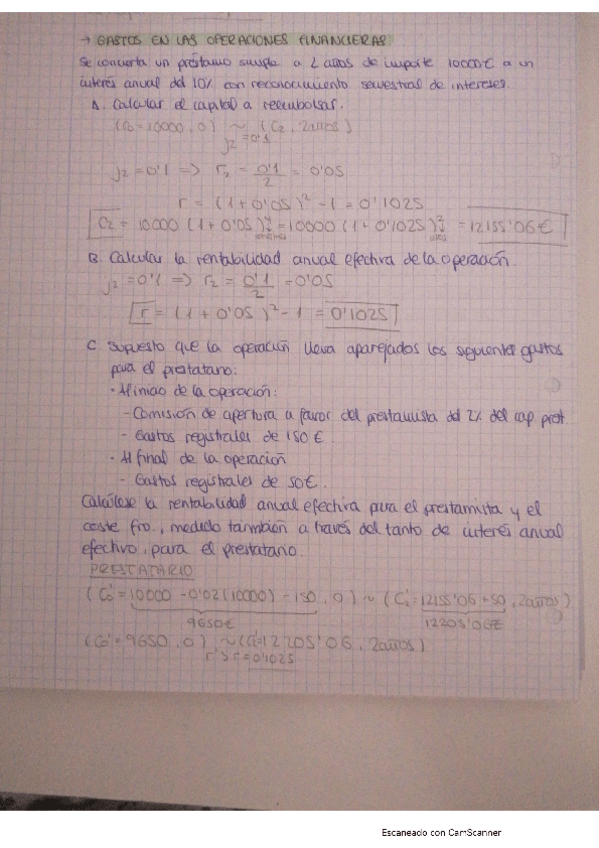 → GASTOS EN LAS OPERACIONES FINANCIERAS
Se concierta un préstamo simple a 2 años de importe 10000€ a un
interés anual del 10% con reconocimiento semestral de intereses.
A. Calcular el capital a reembolsar.
(C0 = 10000, 0) ~ (C2, 2años)
j2 = 0'1
j2 = 0'1 => r2 = 0'1/2 = 0'05
r = (1+0'05)² - 1 = 0'1025
C2 = 10000 (1+0'05)⁴ = 10000 (1+0'1025)² = 12155'06€
B. Calcular la rentabilidad anual efectiva de la operación.
j2 = 0'1 => r2 = 0'1/2 = 0'05
r = (1+0'05)² - 1 = 0'1025
C. Supuesto que la operación lleva aparejados los siguientes gastos
para el prestatario:
· Al inicio de la operación:
- Comisión de apertura a favor del prestamista del 2% del cap prest.
- Gastos registrales de 150€.
· Al final de la operación
- Gastos registrales de 50€.
Calcúlese la rentabilidad anual efectiva para el prestamista y el
coste fro, medido también a través del tanto de interés anual
efectivo, para el prestatario.
PRESTATARIO
(C0' = 10000 - 0'02(10000) - 150, 0) ~ (C2' = 12155'06 + 50, 2años)
9650€ 12205'06€
(C0' = 9650, 0) ~ (C2' = 12205'06, 2años)
r' > r = 0'1025
Escaneado con CamScanner